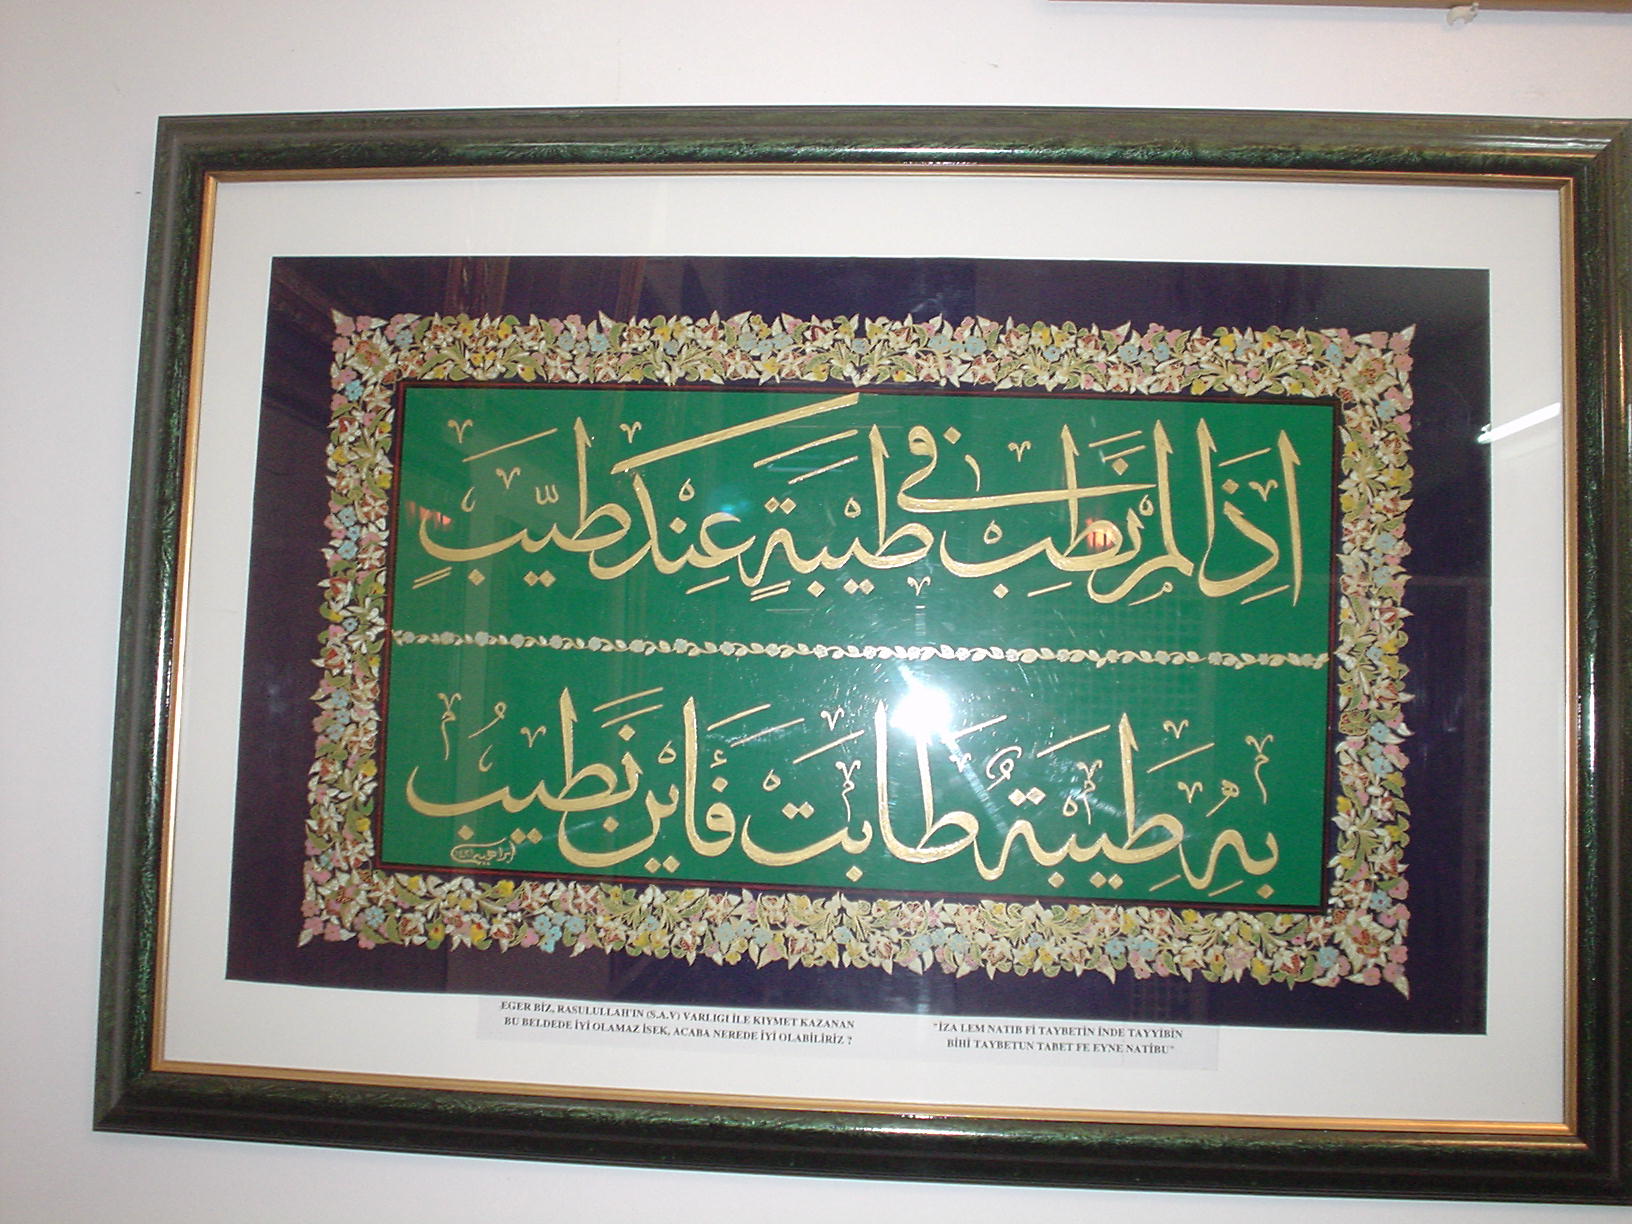 اِذَا لَمْ نَطِبْ فِى طَيْبَةٍ عِنْدَ طَيِّبٍ
بِهِ طَيْبَةُ طَابَتْ فَأَيْنَ نَطِيبُ
EGER BİZ, RASULULLAH'IN (S.A.V) VARLIGI İLE KIYMET KAZANAN
BU BELDEDE İYİ OLAMAZ İSEK, ACABA NEREDE İYİ OLABİLİRİZ ?
"İZA LEM NATIB Fİ TAYBETİN İNDE TAYYİBİN
BİHİ TAYBETUN TABET FE EYNE NATİBU"